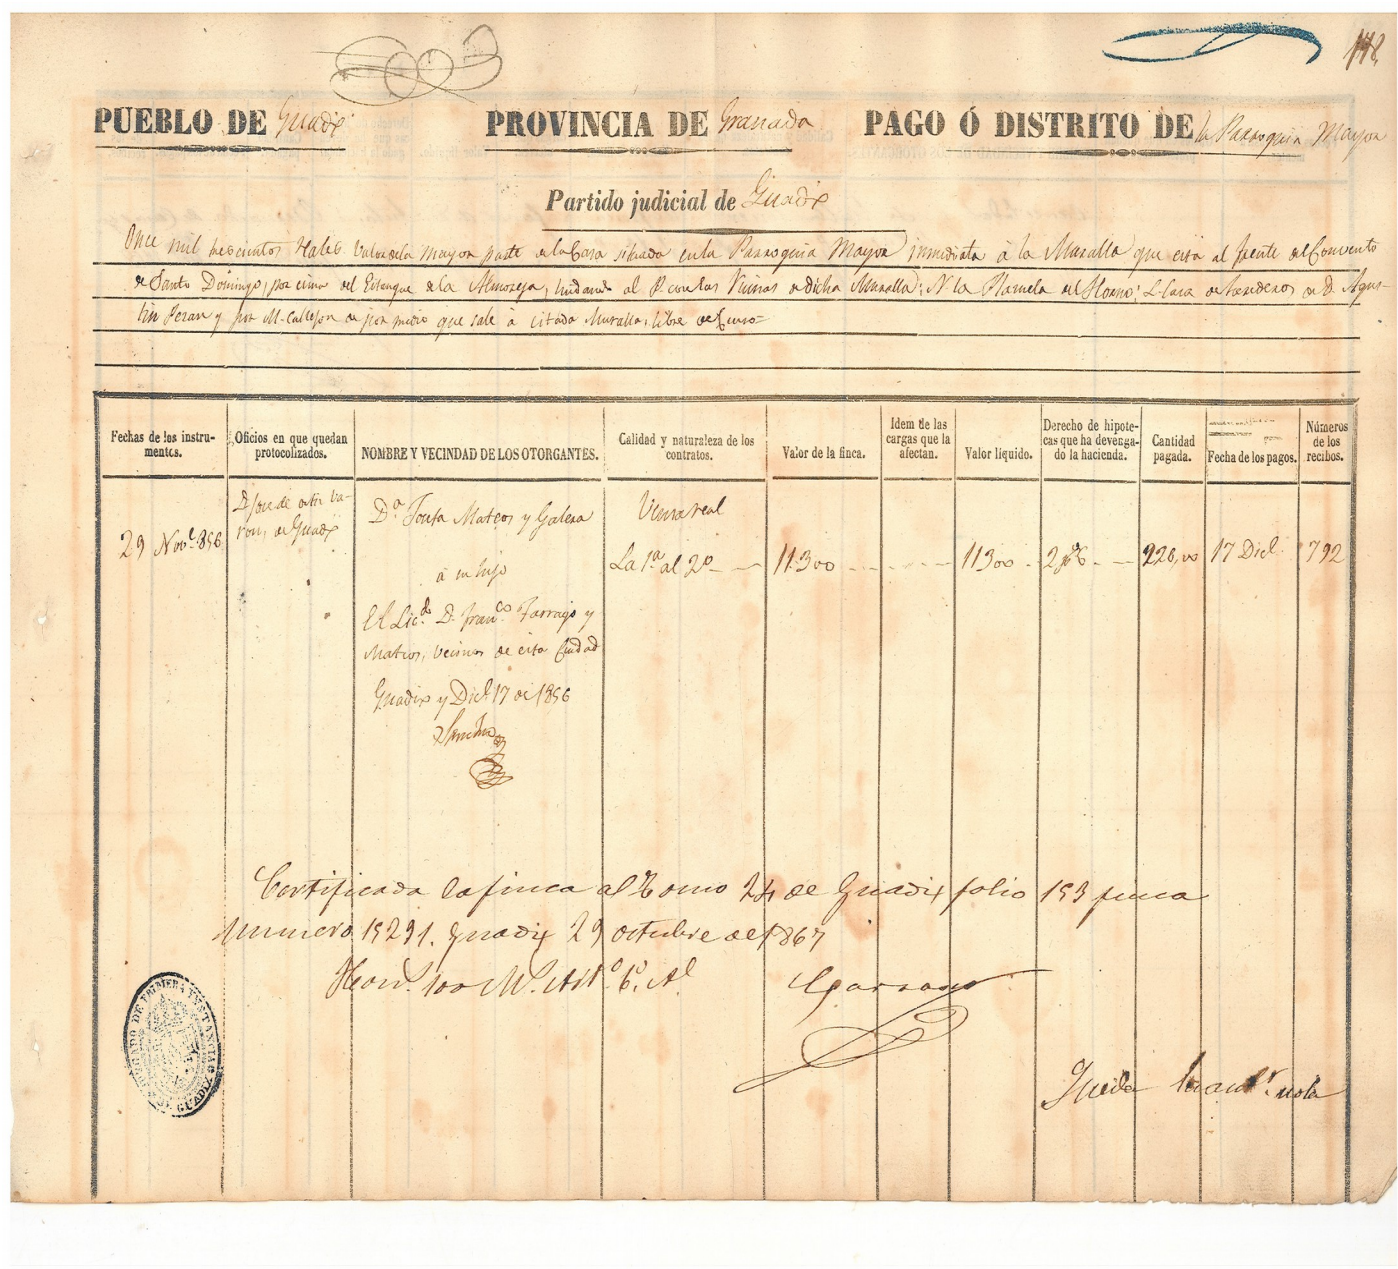 148.
PUEBLO DE Guadix PROVINCIA DE Granada PAGO Ó DISTRITO DE la Parroquia Mayor
Partido judicial de Guadix
Once mil trescientos reales valor de la mayor parte de la Casa situada en la Parroquia Mayor inmediata à la Muralla que está al frente del Convento
de Santo Domingo, por cima del Estanque de la Almoreja, lindando al P. con las Ruinas de dicha Muralla: N. la Plazuela del Horno; L. Casa de herederos de D. Agus-
tin Feran y por M. Callejon de por medio que sale à citada Muralla, libre de Censo=
Fechas de los instru-
mentos.
Oficios en que quedan
protocolizados.
NOMBRE Y VECINDAD DE LOS OTORGANTES.
Calidad y naturaleza de los
contratos.
Valor de la finca.
Idem de las
cargas que la
afectan.
Valor líquido.
Derecho de hipote-
cas que ha devenga-
do la hacienda.
Cantidad
pagada.
Fecha de los pagos.
Números
de los
recibos.
29 Nove. 1856
D. José de Va-
ron, de Guadix
Da. Mateos y Galera
á su hijo
El Licdo. D. Franco. Tarrago y
Mateos, vecinos de esta Ciudad
Guadix y Dice. 17 de 1856
Sanchez
Venta real
La 1a al 2o
11300
11300
2 p%
226,00
17 Dice.
792
Certificada la finca al Tomo 24 de Guadix folio 153 finca
numero 15291. Guadix 29 octubre de 1867
Hons. 100 Ms. Arto. 6o. Al
Garzano
Queda la nota
JUZGADO DE PRIMERA INSTANCIA DE GUADIX